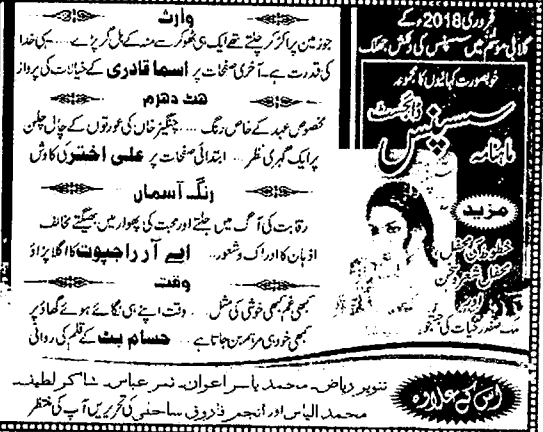 فروری 2018ء کے
گلابی موسم میں سسپنس کی دلکش جھلک
خوبصورت کہانیوں کا مجموعہ
ماہنامہ سسپنس ڈائجسٹ
مزید
خطوط کی محفل
محفل شعر و سخن
اور
وارث
جو زمین پر اکڑ کر چلتے تھے ایک ہی ٹھوکر سے منہ کے بل گر پڑے..... یہی خدا
کی قدرت ہے۔ آخری صفحات پر اسما قادری کے خیالات کی پرواز
ہٹ دھرم
مخصوص عہد کے خاص رنگ .... چنگیز خان کی عورتوں کے چال چلن
پر ایک گہری نظر... ابتدائی صفحات پر علی اختر کی کاوش
رنگ آسماں
رقابت کی آگ میں جلتے اور محبت کی پھوار میں بھیگتے مخالف
اذہان کا ادراک و شعور... اے آر راجپوت کا اگلا پڑاؤ
وقت
کبھی غم کبھی خوشی کی مثل... وقت اپنے ہی لگائے ہوئے گھاؤ پر
کبھی خود ہی مرہم بن جاتا ہے... حسام بٹ کے قلم کی روانی
اس کے علاوہ
تنویر ریاض۔ محمد یاسر اعوان۔ ثمر عباس۔ شاکر لطیف۔
محمد الیاس اور انجم فاروق ساحلی کی تحریریں آپ کی منتظر